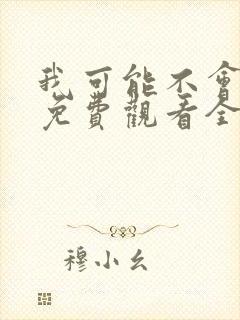 我可能不會
免費觀看全
穆小幺